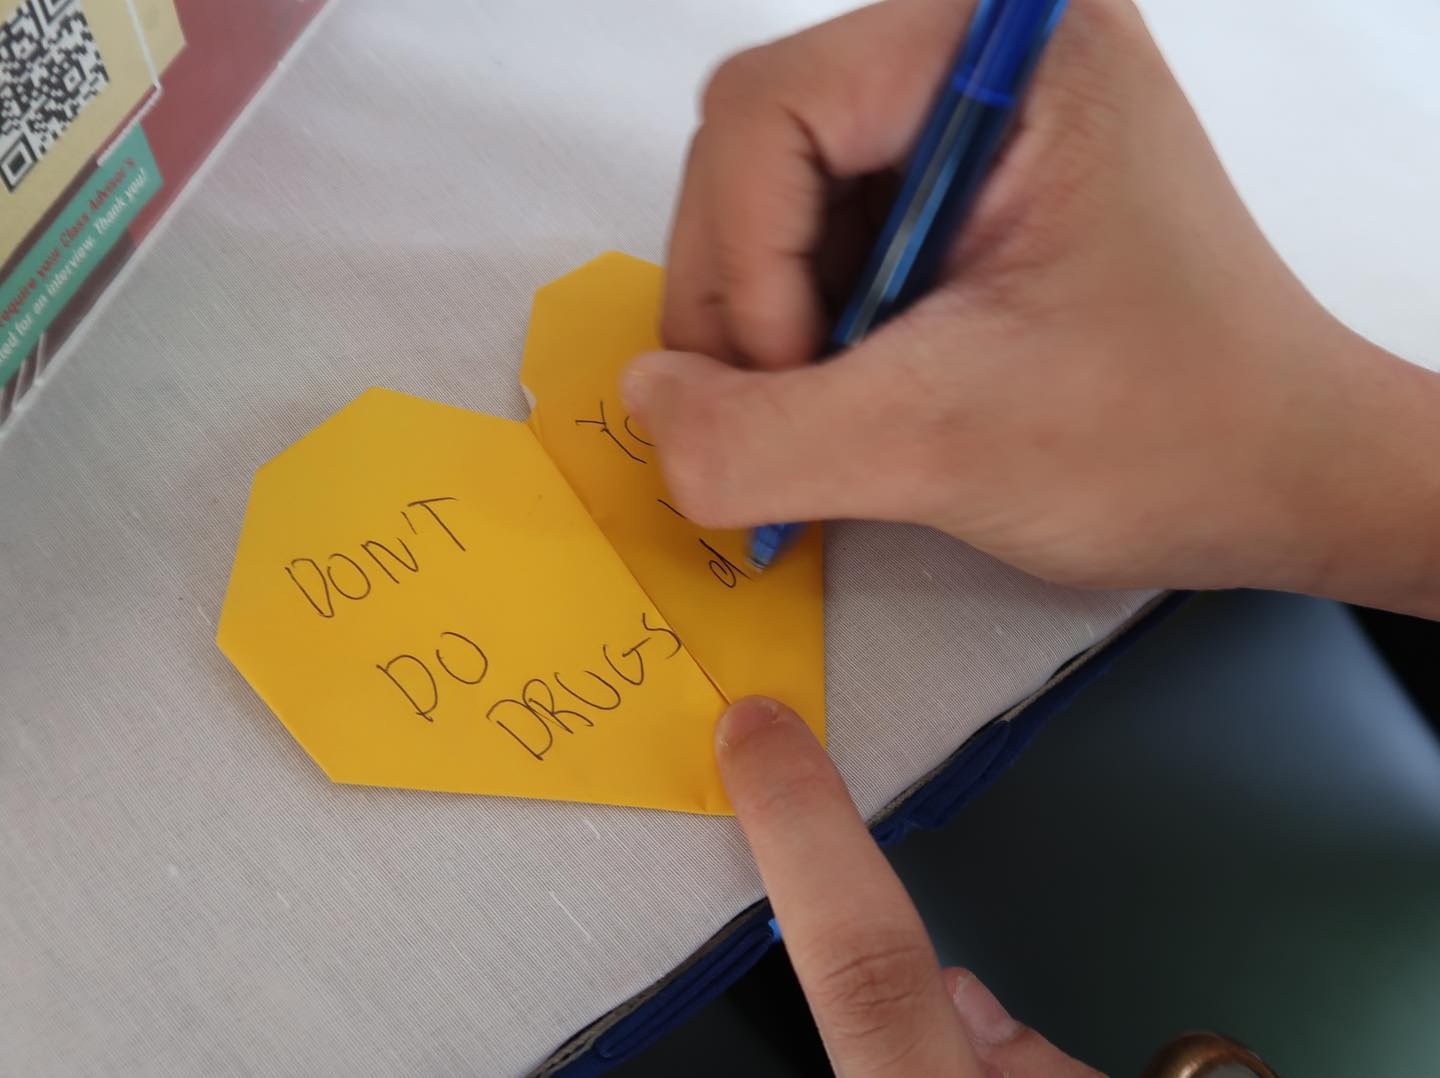 require your Class Adviser's
for an interview. Thank you!
DON'T
DO
DRUGS
YO
d